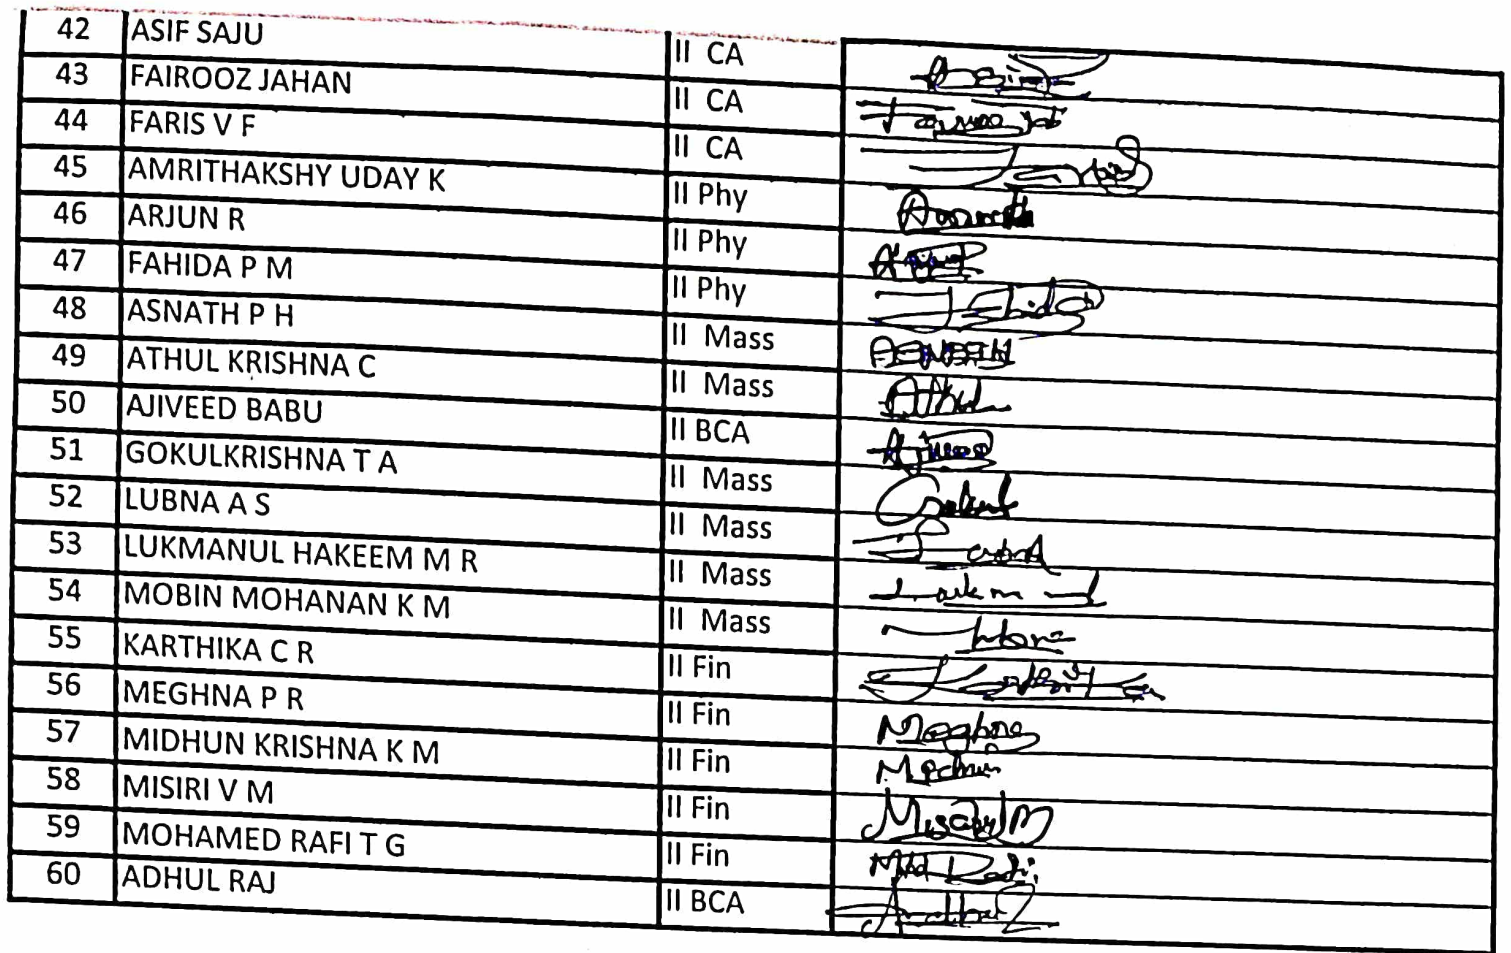 42 ASIF SAJU II CA
43 FAIROOZ JAHAN II CA
44 FARIS V F II CA
45 AMRITHAKSHY UDAY K II Phy
46 ARJUN R II Phy
47 FAHIDA P M II Phy
48 ASNATH P H II Mass
49 ATHUL KRISHNA C II Mass Athul
50 AJIVEED BABU II BCA
51 GOKULKRISHNA T A II Mass Gokul
52 LUBNA A S II Mass
53 LUKMANUL HAKEEM M R II Mass
54 MOBIN MOHANAN K M II Mass
55 KARTHIKA C R II Fin
56 MEGHNA P R II Fin Meghna
57 MIDHUN KRISHNA K M II Fin Midhun
58 MISIRI V M II Fin
59 MOHAMED RAFI T G II Fin
60 ADHUL RAJ II BCA